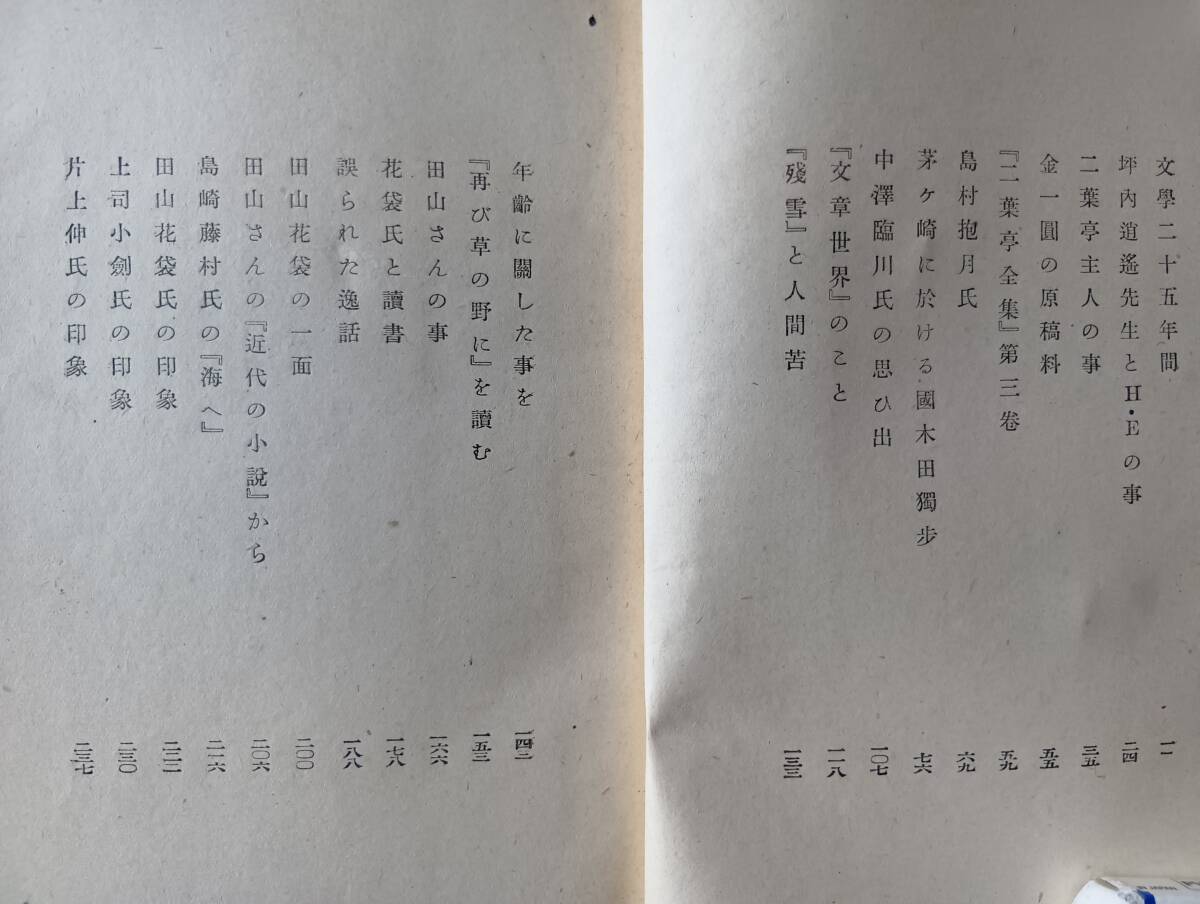 文學二十五年間 一一
坪內逍遙先生とH・Eの事 二四
二葉亭主人の事 三五
金一圓の原稿料 五五
『二葉亭全集』第三卷 五九
島村抱月氏 六九
茅ヶ崎に於ける國木田獨步 七六
中澤臨川氏の思ひ出 一〇七
『文章世界』のこと 一一八
『殘雪』と人間苦 一三三
年齡に關した事を 一四二
『再び草の野に』を讀む 一五三
田山さんの事 一六六
花袋氏と讀書 一七八
誤られた逸話 一八八
田山花袋の一面 二〇〇
田山さんの『近代の小說』から 二〇六
島崎藤村氏の『海へ』 二一六
田山花袋氏の印象 二二二
上司小劍氏の印象 二三〇
片上伸氏の印象 二三七
IN JAPAN